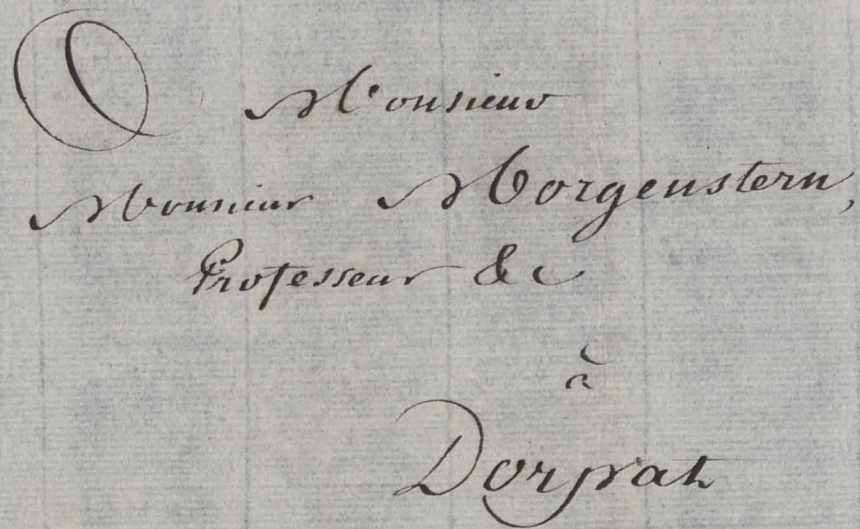 A Monsieur
Monsieur Morgenstern,
Professeur &c
à
Dorpat